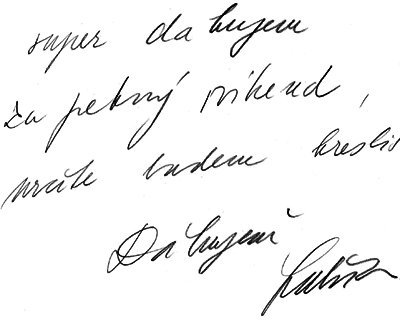 super dakujem
za pekný víkend,
určite budem kresliť
Ďakujem